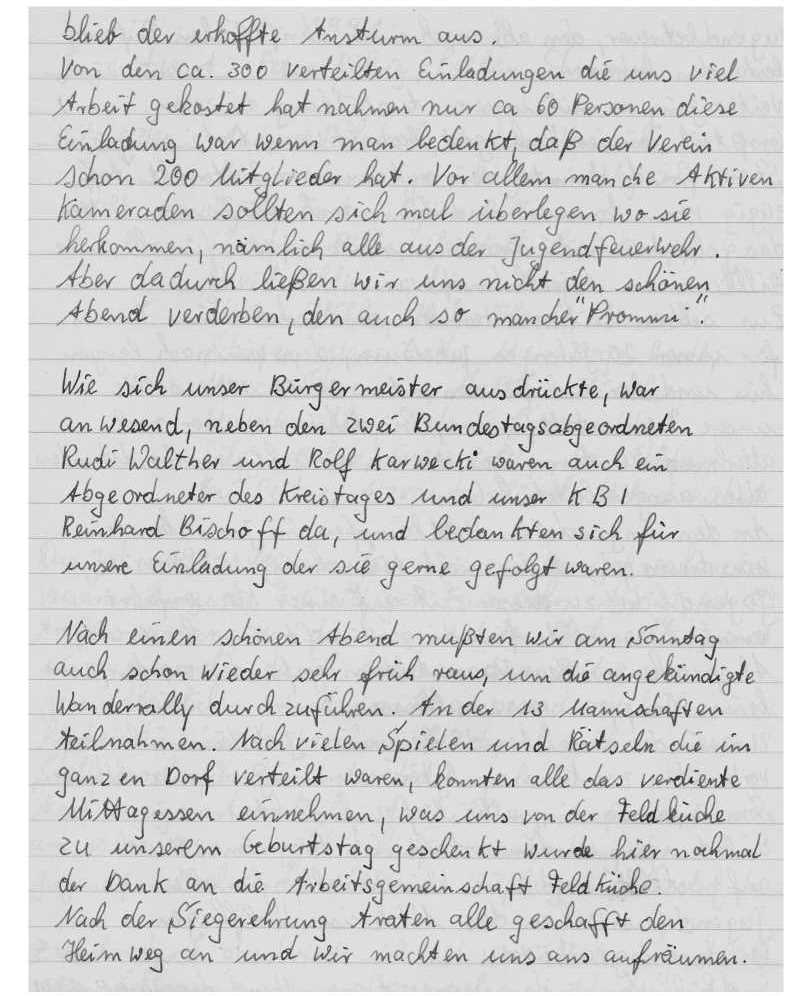 blieb der erhoffte Ansturm aus.
Von den ca. 300 verteilten Einladungen die uns viel
Arbeit gekostet hat nahmen nur ca 60 Personen diese
Einladung war wenn man bedenkt, daß der Verein
schon 200 Mitglieder hat. Vor allem manche Aktiven
Kameraden sollten sich mal überlegen wo sie
herkommen, nämlich alle aus der Jugendfeuerwehr.
Aber dadurch ließen wir uns nicht den schönen
Abend verderben, den auch so mancher "Prommi".
Wie sich unser Bürgermeister ausdrückte, war
anwesend, neben den zwei Bundestagsabgeordneten
Rudi Walther und Rolf Karwecki waren auch ein
Abgeordneter des Kreistages und unser KBI
Reinhard Bischoff da, und bedankten sich für
unsere Einladung der sie gerne gefolgt waren.
Nach einen schönen Abend mußten wir am Sonntag
auch schon wieder sehr früh raus, um die angekündigte
Wanderrally durchzuführen. An der 13 Mannschaften
teilnahmen. Nach vielen Spielen und Rätseln die im
ganzen Dorf verteilt waren, konnten alle das verdiente
Mittagessen einnehmen, was uns von der Feldküche
zu unserem Geburtstag geschenkt wurde hier nochmal
der Dank an die Arbeitsgemeinschaft Feldküche.
Nach der Siegerehrung traten alle geschafft den
Heimweg an und wir machten uns ans aufräumen.